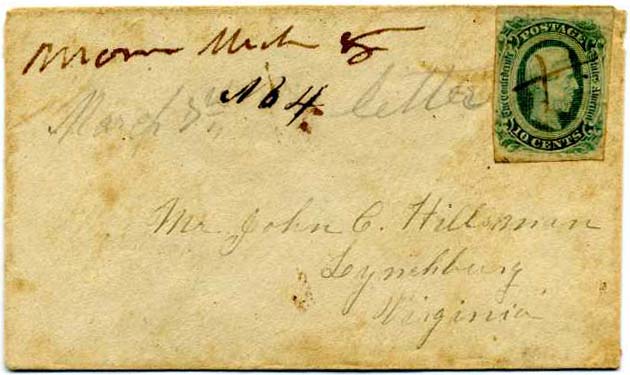 No 4
March letter
POSTAGE
The Confederate States America
10 CENTS
Mr. John C. Hillsman
Lynchburg
Virginia